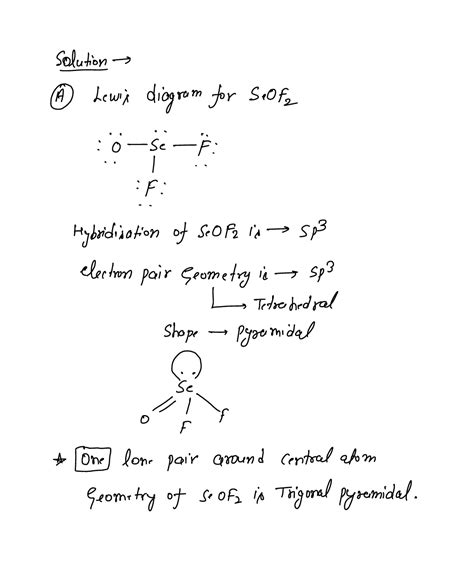 Solution →
(A) Lewis diagram for SeOF2
: O — Se — F :
: F :
Hybridisation of SeOF2 is → sp3
electron pair Geometry is → sp3
→ Tetrahedral
Shape → pyramidal
Se
O F F
* One lone pair around central atom
Geometry of SeOF2 is Trigonal pyramidal.